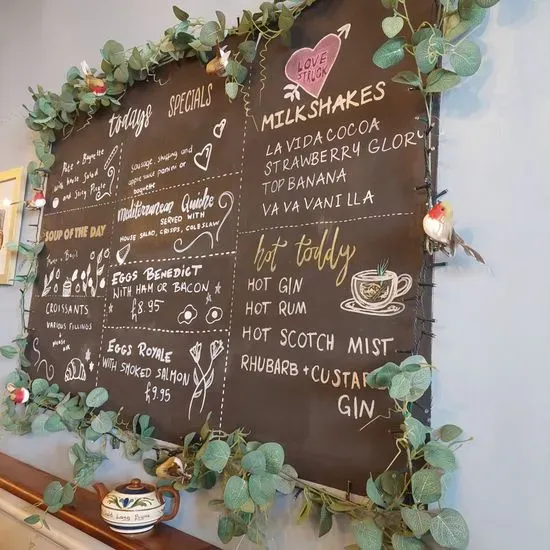 todays SPECIALS
Pate + Baguette
with house Salad
and Spicy Pickle
Sausage, stuffing and
apple sauce panini or
baguette
SOUP OF THE DAY
Mediterranean Quiche
SERVED WITH
HOUSE SALAD, CRISPS, COLESLAW
CROISSANTS
VARIOUS FILLINGS
EGGS BENEDICT
WITH HAM OR BACON
£8.95
EGGS ROYALE
WITH SMOKED SALMON
£9.95
LOVE
STRUCK
MILKSHAKES
LA VIDA COCOA
STRAWBERRY GLOR
TOP BANANA
VA VA VANILLA
hot toddy
HOT GIN
HOT RUM
HOT SCOTCH MIST
RHUBARB + CUSTAR
GIN